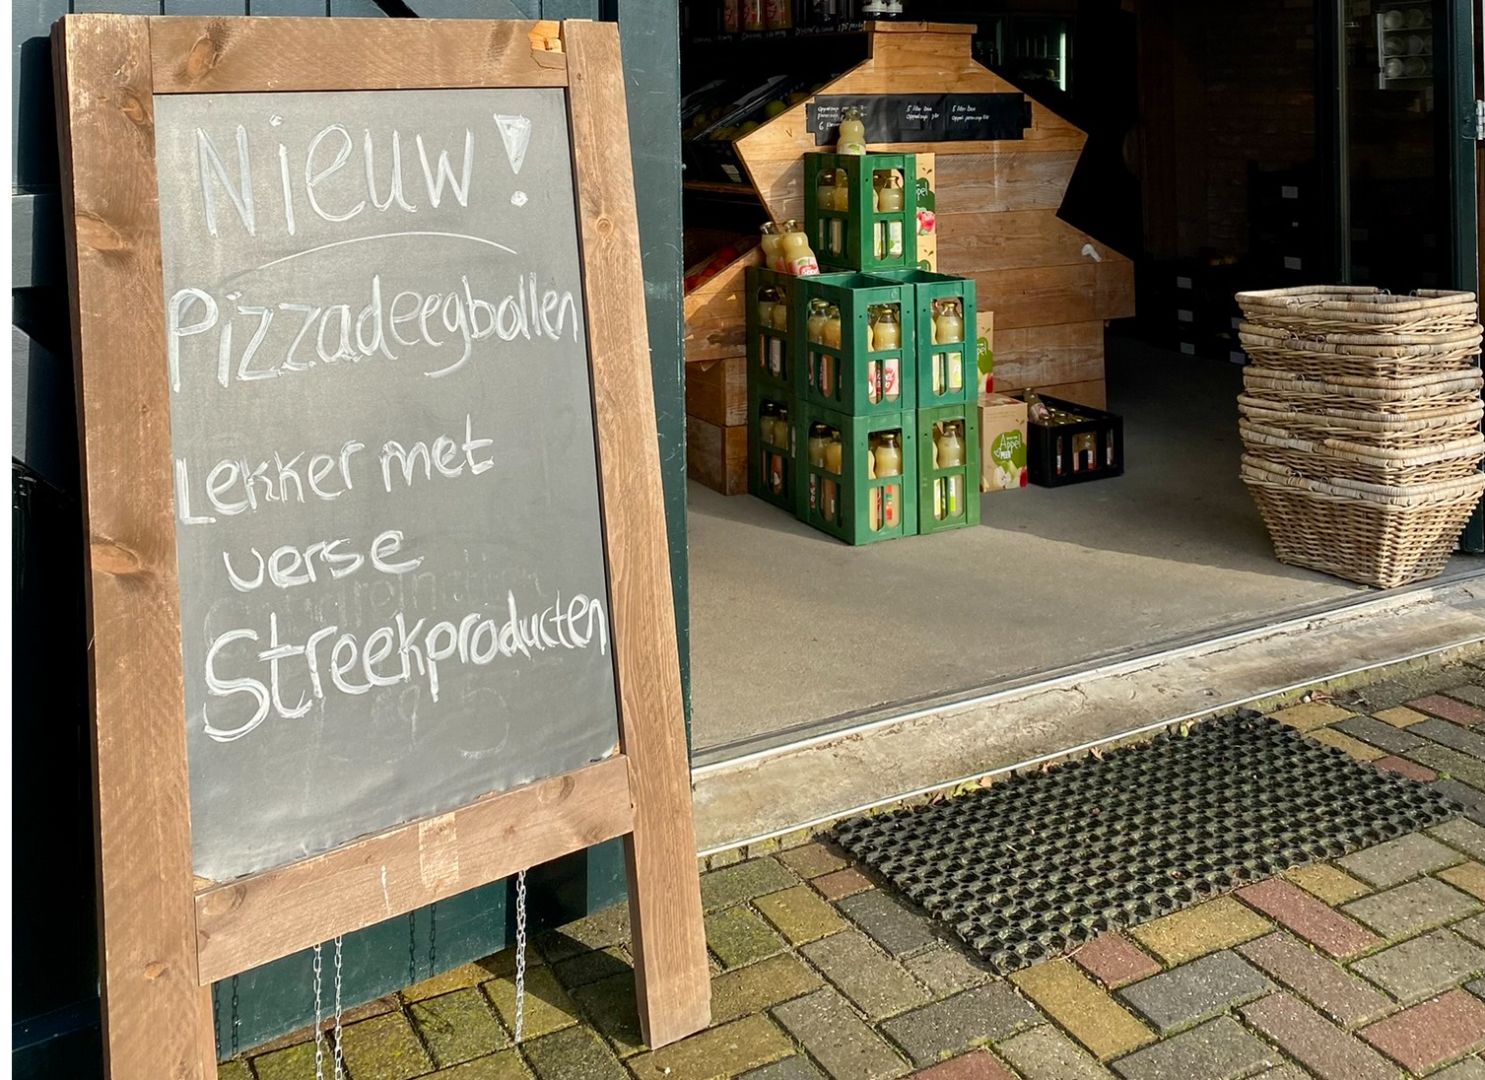 Nieuw!
Pizzadeegbollen
Lekker met
verse
Streekproducten
Appel
PEER